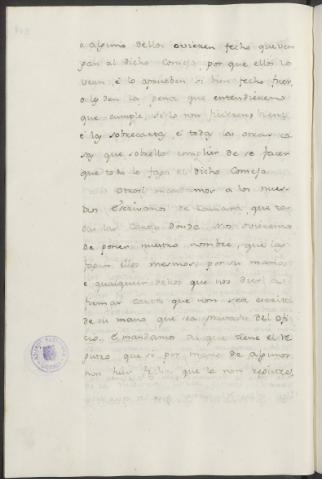 o alguno dellos ovieren fecho que ven
gan al dicho Consejo, por que ellos lo
vean, e lo aprueben si bien fecho fuer,
o le den la pena que entendieremos
que cumple, si lo non fisieren
e las sobrecartas, e todas las otras co
sas que sobrello complier de se facer
que todo lo faga el dicho Consejo.
Otrosi mandamos a los nues
tros Escrivanos de Camara, que to
das las Cartas donde Nos ovieremos
de poner nuestro nombre, que las
fagan ellos mesmos, por su mano
e qualquier dellos que nos dier a
firmar carta que non sea escrita
de su mano que sea privado del Ofi
cio. E mandamos al que tiene el Re
gistro, que si por mano de algunos
non fuer fecha que la non registre,